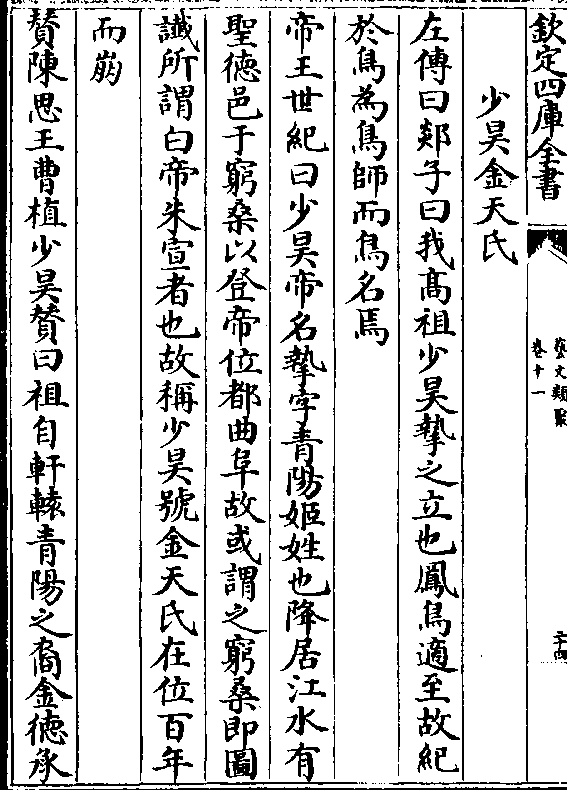 欽定四庫全書
藝文類聚
卷十一
二十四
少昊金天氏
左傳曰郯子曰我高祖少昊摯之立也鳳鳥適至故紀
於鳥為鳥師而鳥名焉
帝王世紀曰少昊帝名摯字青陽姬姓也降居江水有
聖德邑于窮桑以登帝位都曲阜故或謂之窮桑即圖
讖所謂白帝朱宣者也故稱少昊號金天氏在位百年
而崩
贊陳思王曹植少昊贊曰祖自軒轅青陽之裔金德承